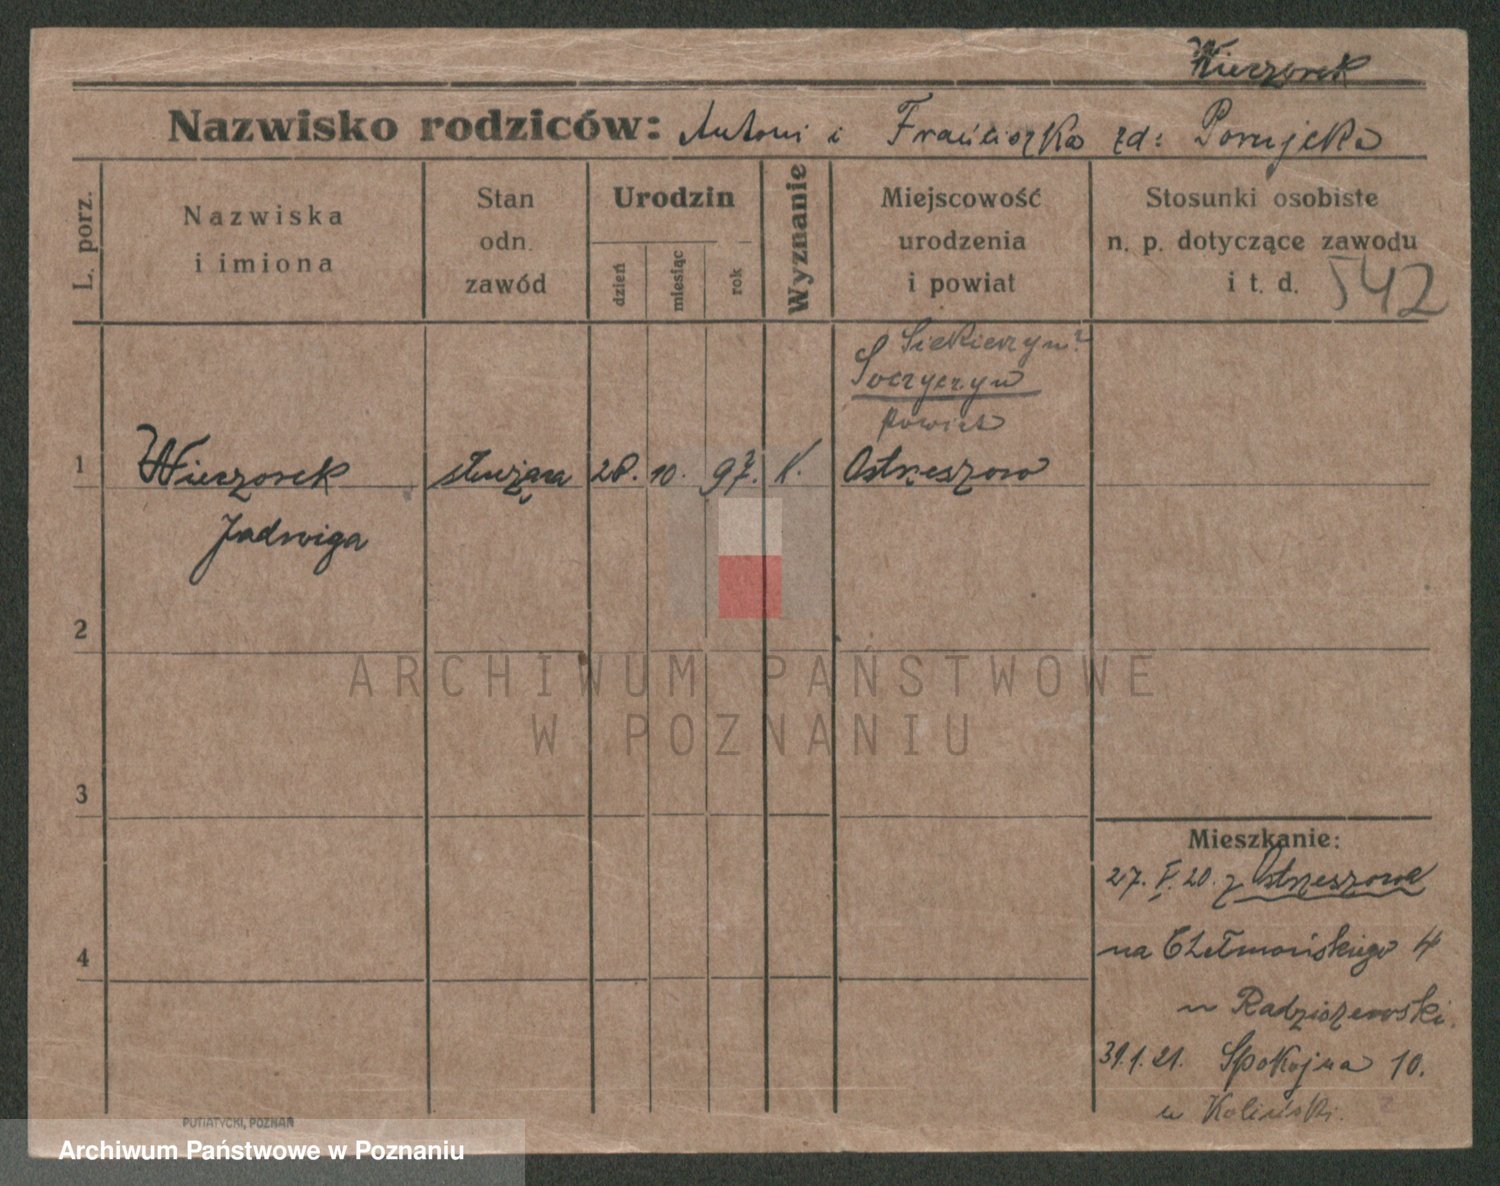 Wieczorek
Nazwisko rodziców: Antoni i Franciszka zd:
L. porz.
Nazwiska
i imiona
Stan
odn.
zawód
Urodzin
dzień
miesiąc
rok
Wyznanie
Miejscowość
urodzenia
i powiat
Stosunki osobiste
n. p. dotyczące zawodu
i t. d. 542
powiat
1 Wieczorek służąca 28. 10. 97. K. Ostrzeszowo
Jadwiga
2
3
4
Mieszkanie:
27. V. 20. z Ostrzeszowa
na Chełmońskiego 4
u Radziszewski.
31.1.21. Spokojna 10.
u
PUTIATYCKI, POZNAŃ
ARCHIWUM PAŃSTWOWE
W POZNANIU
Archiwum Państwowe w Poznaniu